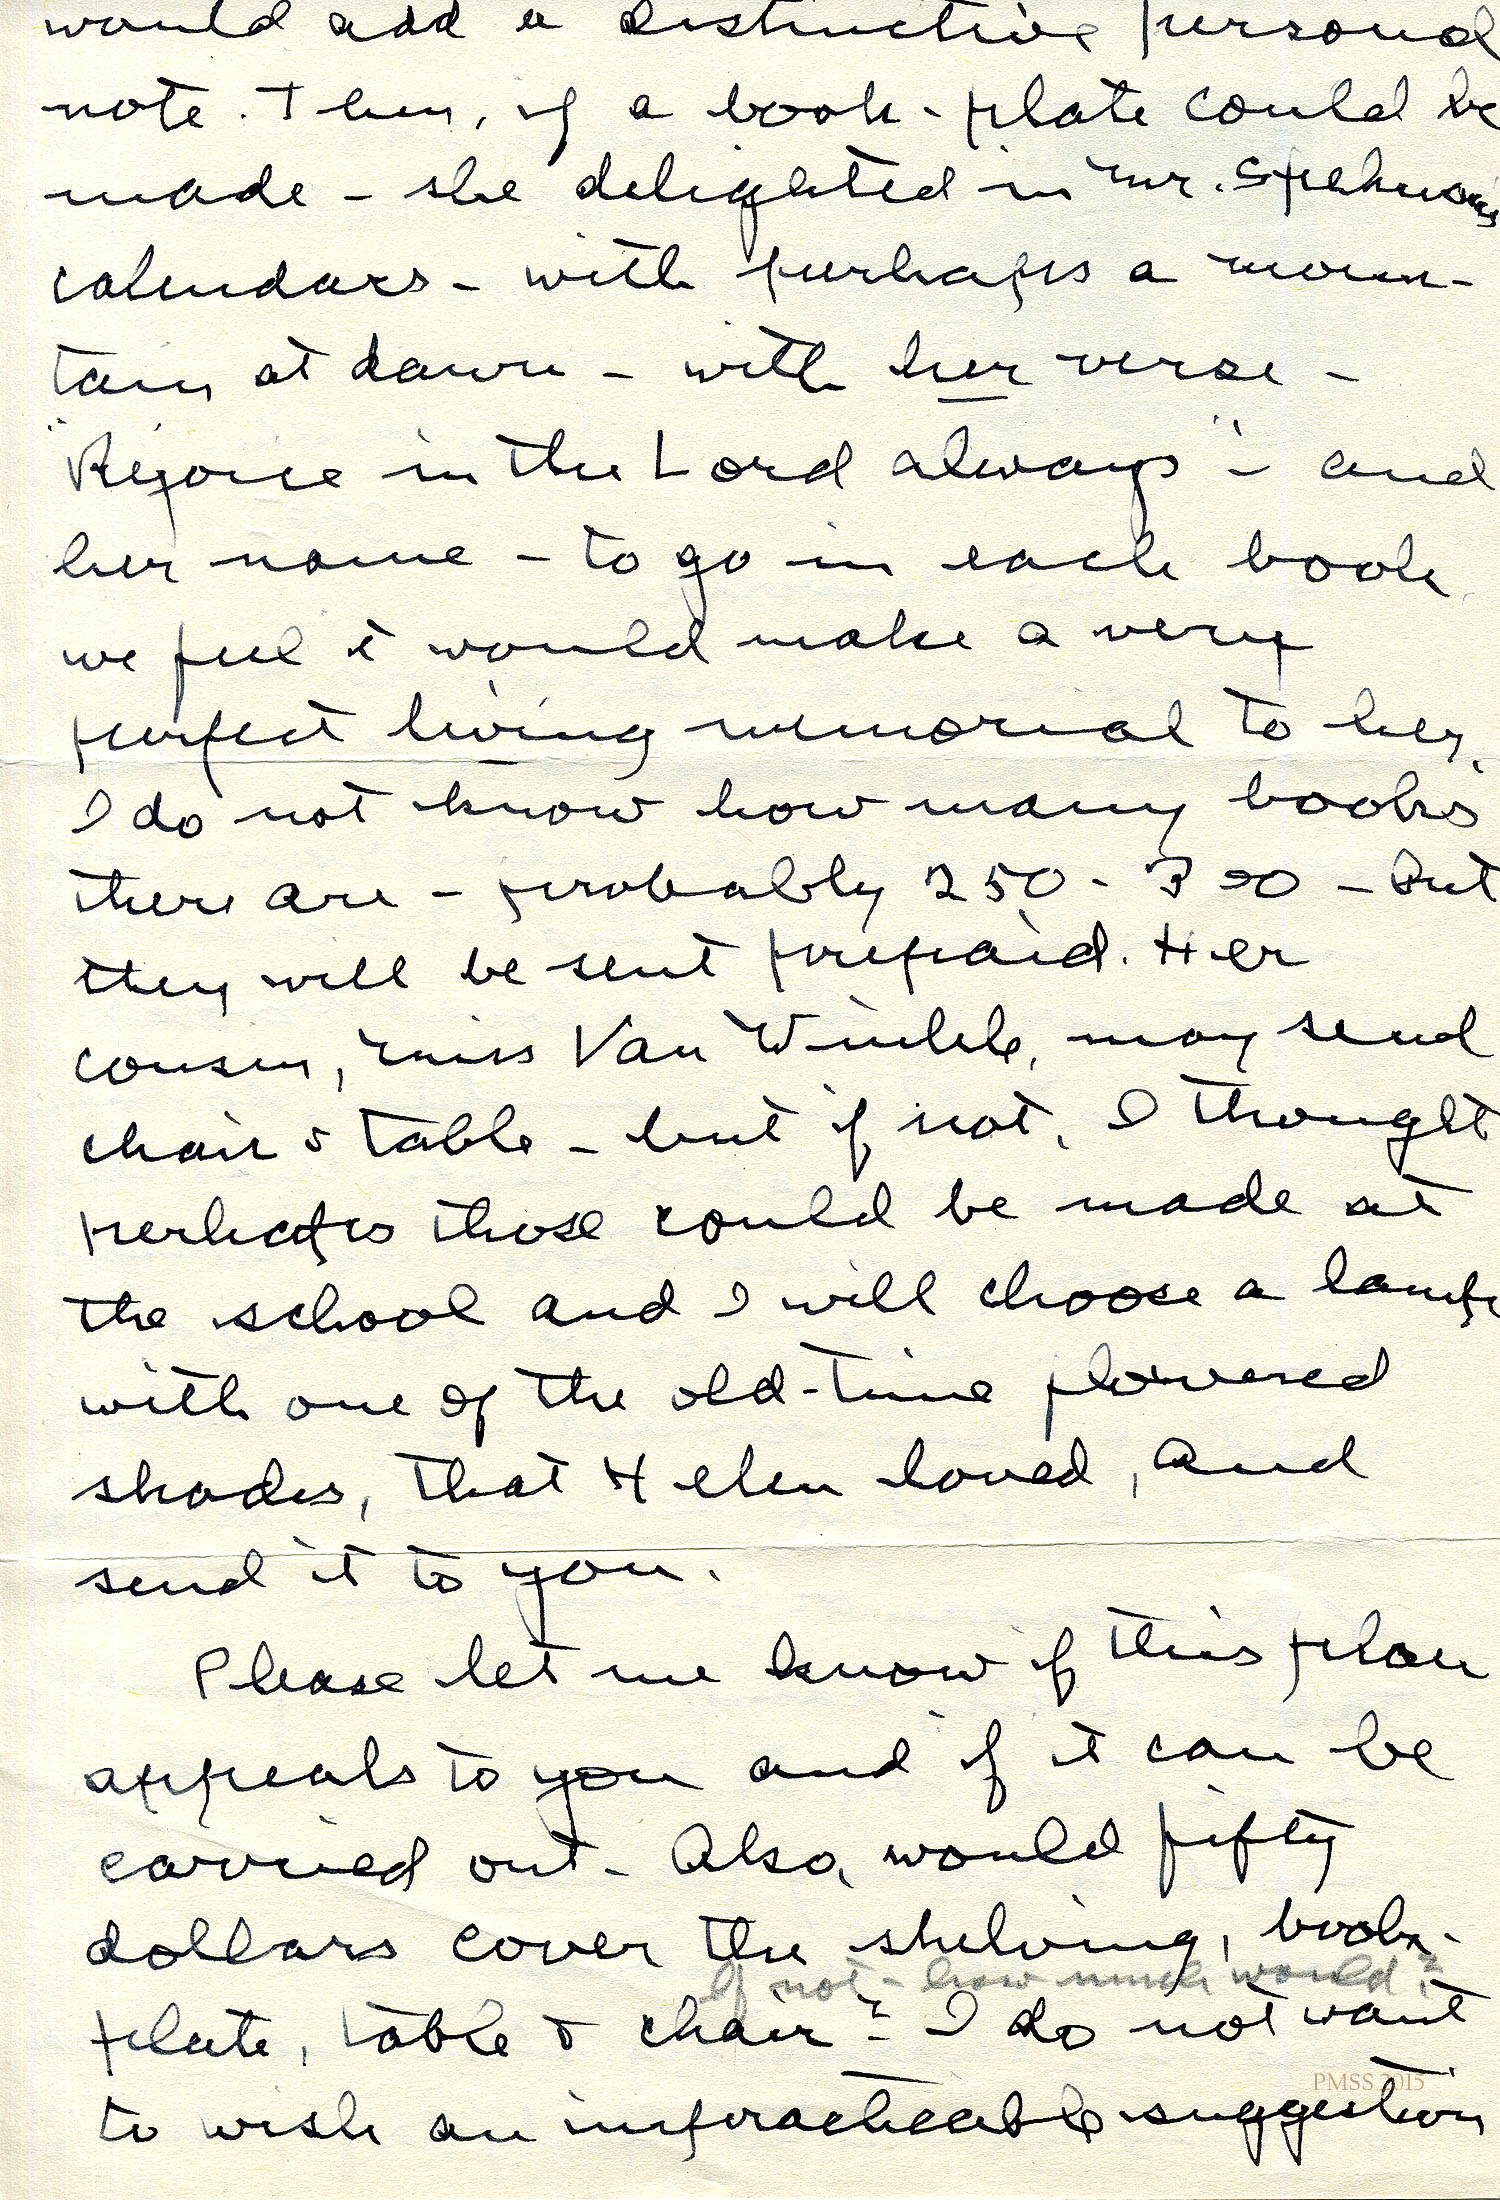 would add a distinctive personal
note. Then, if a book-plate could be
made - she delighted in Mr.
calendars - with perhaps a moun-
tain at dawn - with her verse -
"Rejoice in the Lord always" - and
her name - to go in each book
we feel it would make a very
perfect living memorial to her.
I do not know how many books
there are - probably 250 - 300 - but
they will be sent prepaid. Her
cousin, Miss Van Winkle, may send
chair & table - but if not, I thought
perhaps those could be made at
the school and I will choose a lamp
with one of the old-time flowered
shades, that Helen loved, and
send it to you.
Please let me know if this plan
appeals to you and if it can be
carried out - Also, would fifty
dollars cover the shelving, book-
If not - how much would?
plate, table & chair? I do not want
PMSS 2015
to wish an impracticable suggestion